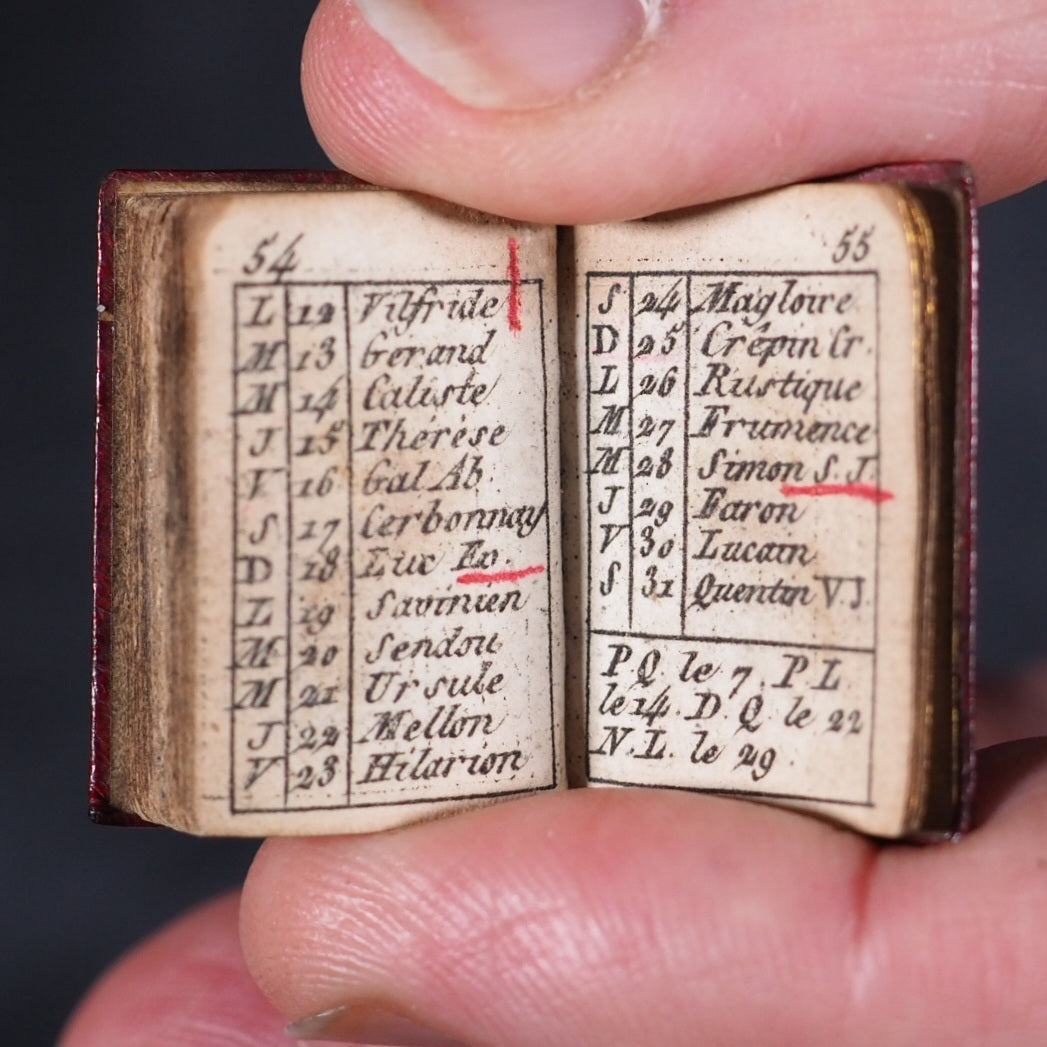 54
L 12 Vilfride
M 13 Gerand
M 14 Caliste
J 15 Thérèse
V 16 Gal Ab.
S 17 Cerbonnay
D 18 Luc Ev.
L 19 Savinien
M 20 Sendou
M 21 Ursule
J 22 Mellon
V 23 Hilarion
55
S 24 Magloire
D 25 Crêpin Cr.
L 26 Rustique
M 27 Frumence
M 28 Simon S. J.
J 29 Faron
V 30 Lucain
S 31 Quentin V J
P Q le 7. P L
le 14. D. Q. le 22
N. L. le 29.